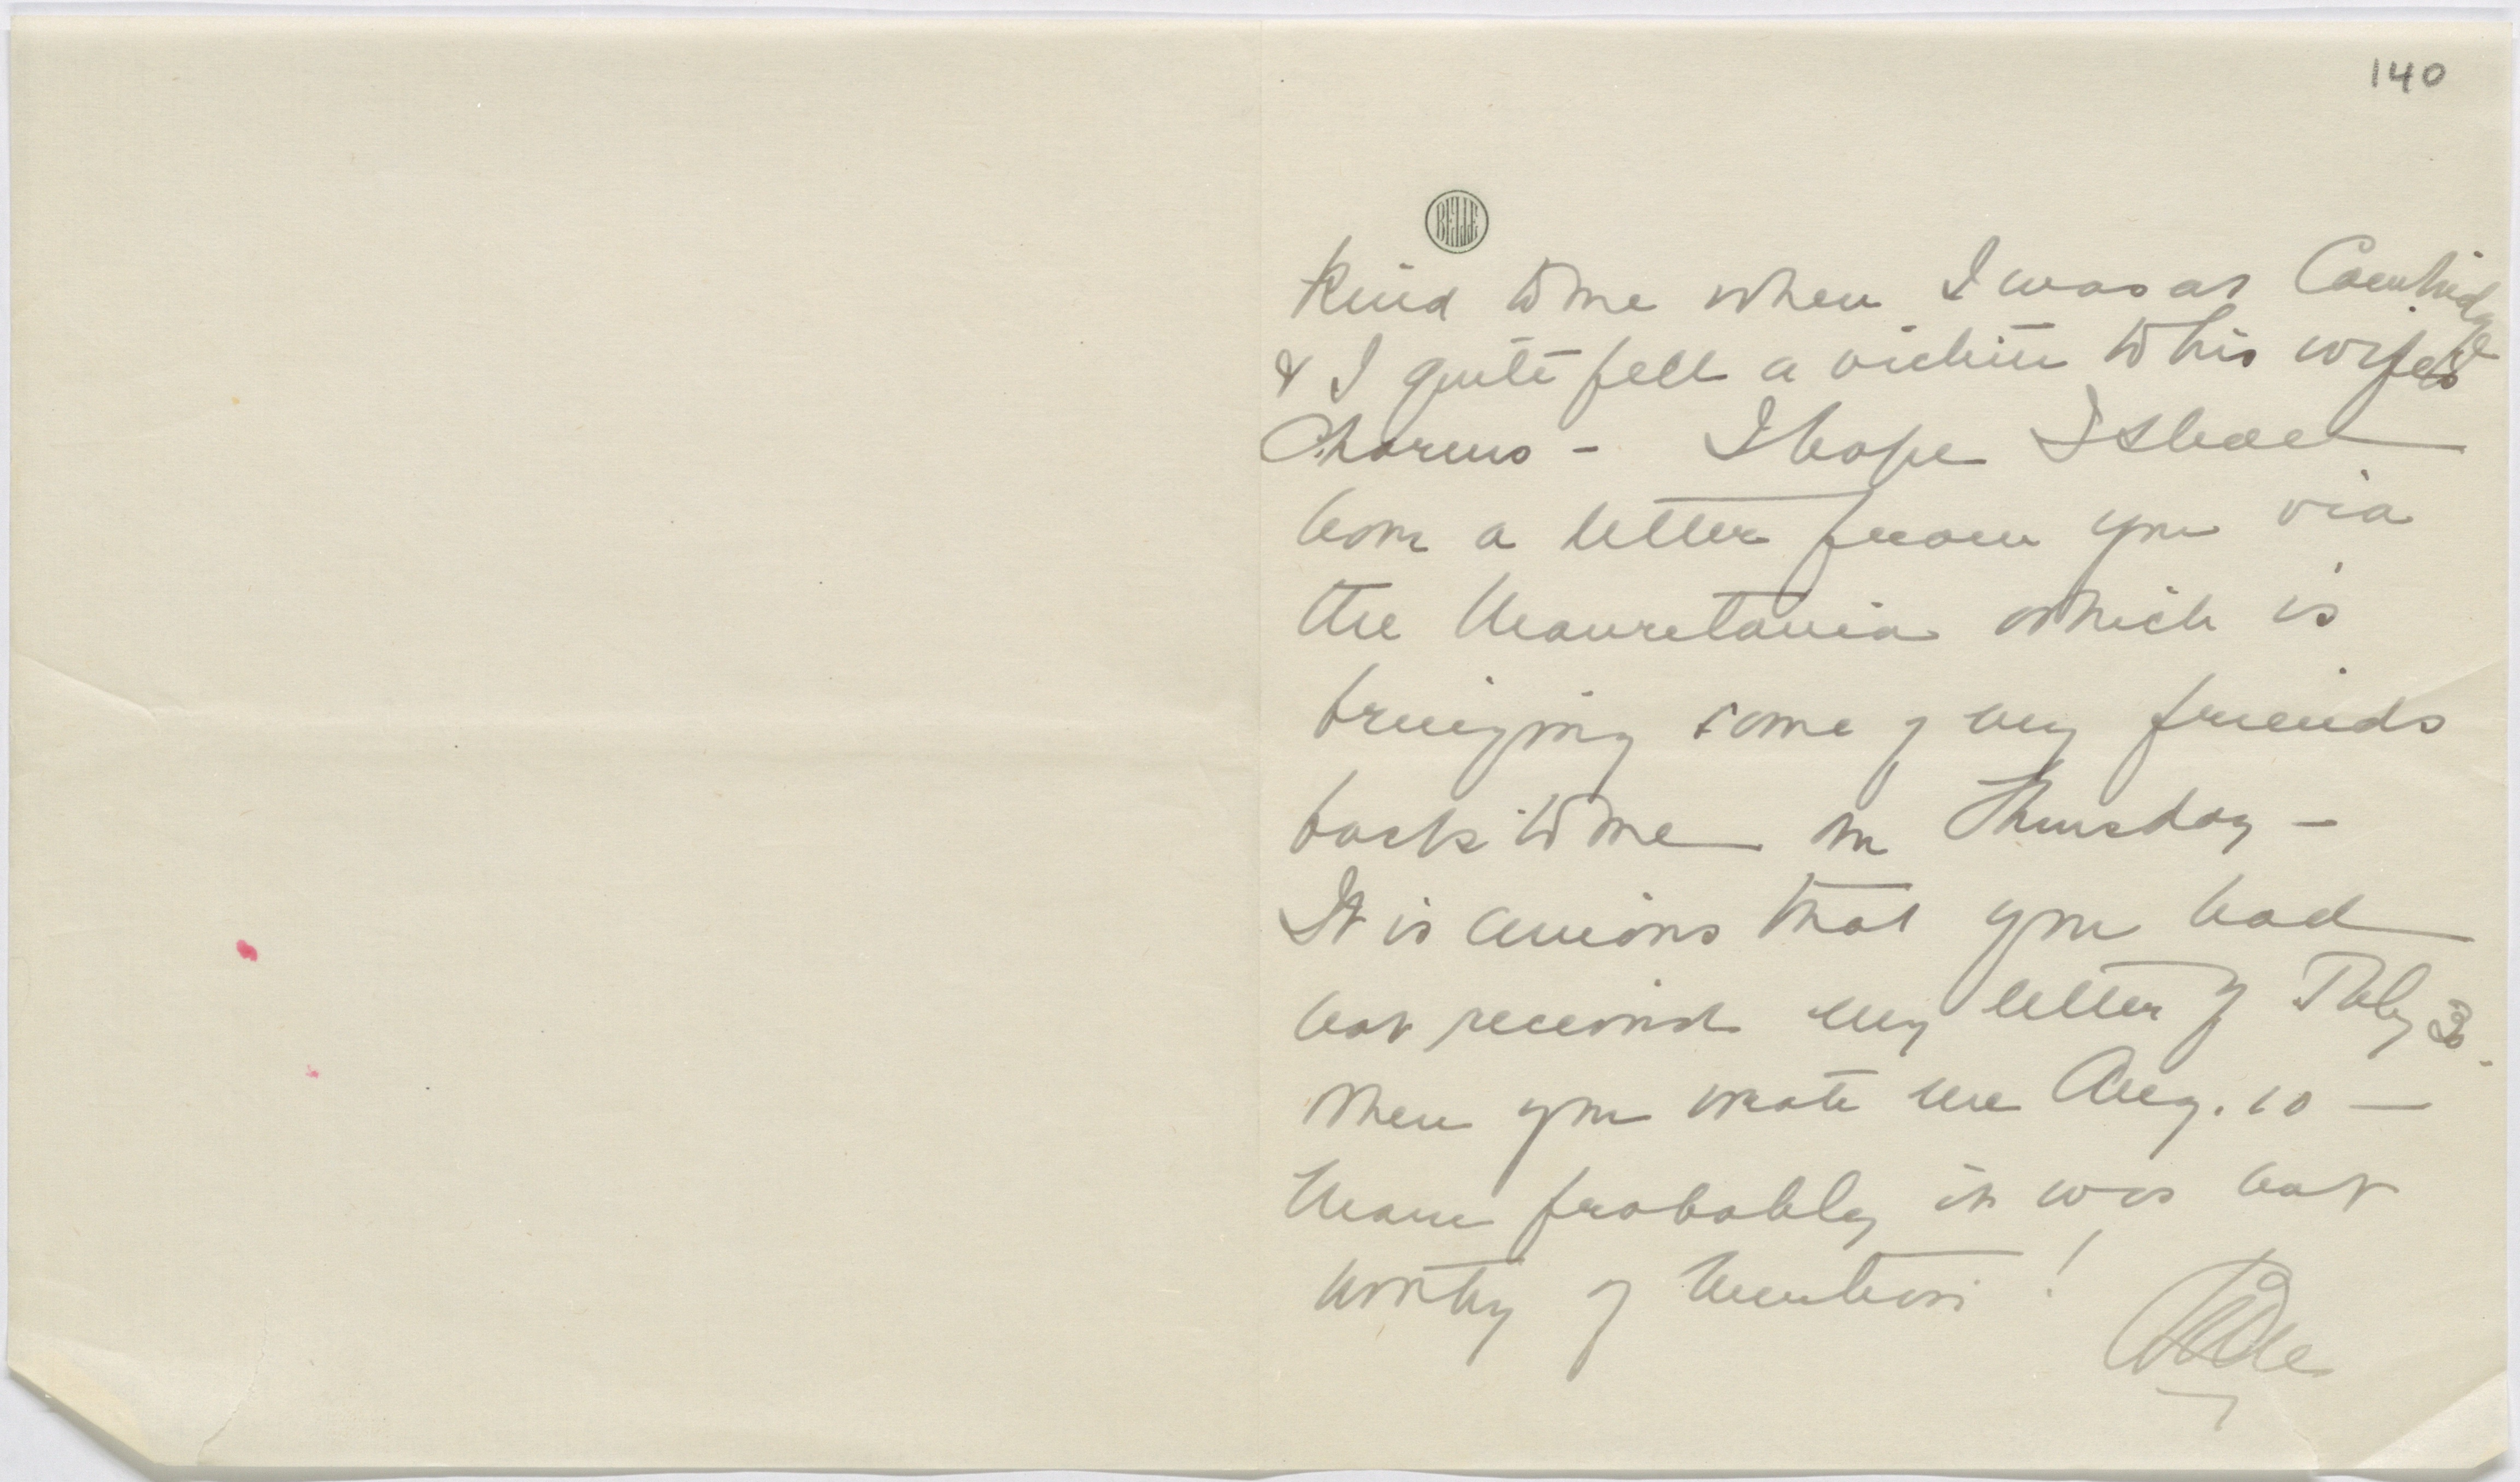 140
BELLE
kind to me when I was at Cambridge
& I quite fell a victim to his wife's
Charms - I hope I shall
have a letter from you via
the Mauretania which is
bringing some of my friends
back to me on Thursday -
It is curious that you had
not received my letter of July 30.
when you wrote me Aug. 10 -
Mais probably it was not
worthy of mention!
Belle